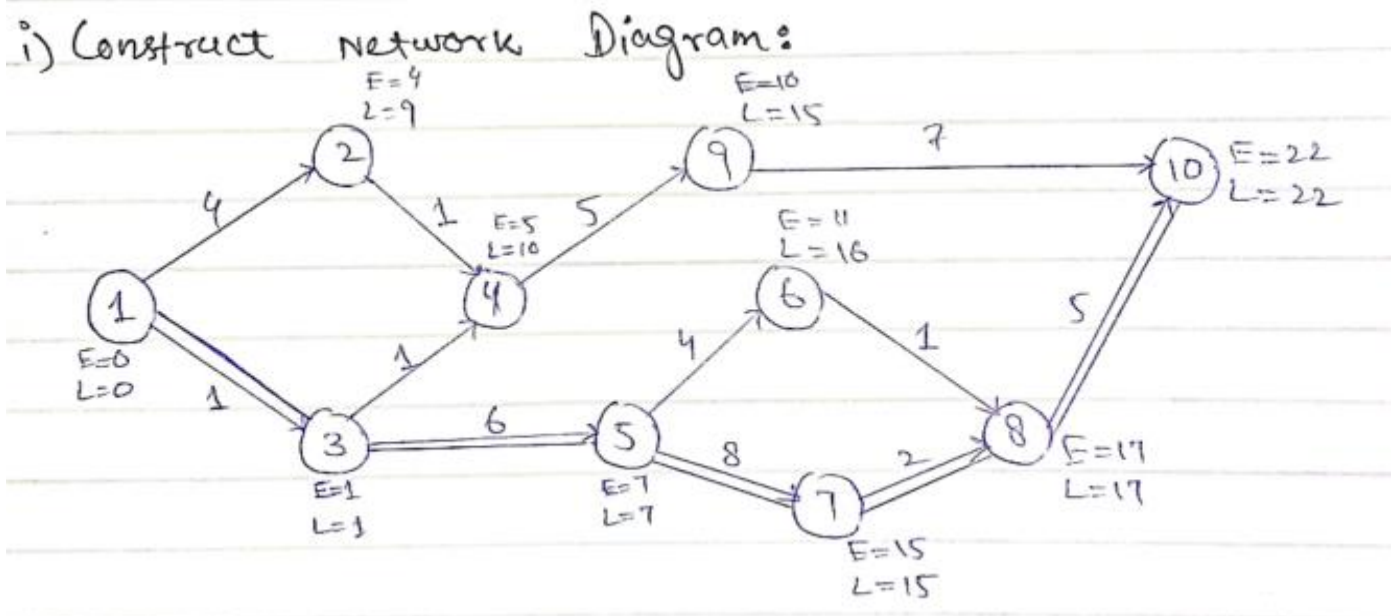 i) Construct Network Diagram:
E=4
L=9
2
E=10
L=15
9
7
10
E=22
L=22
4
1
E=5
L=10
4
5
E=11
L=16
6
1
E=0
L=0
1
1
4
1
5
3
E=1
L=1
6
5
E=7
L=7
8
7
E=15
L=15
2
8
E=17
L=17